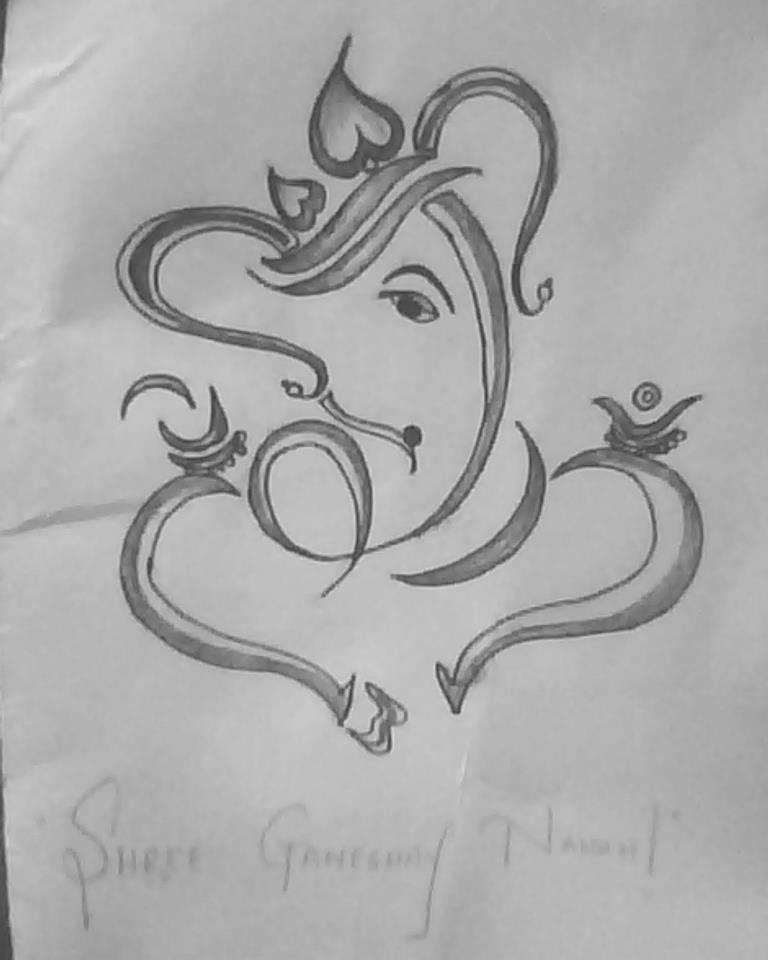 "Shree Ganeshay Namah!"